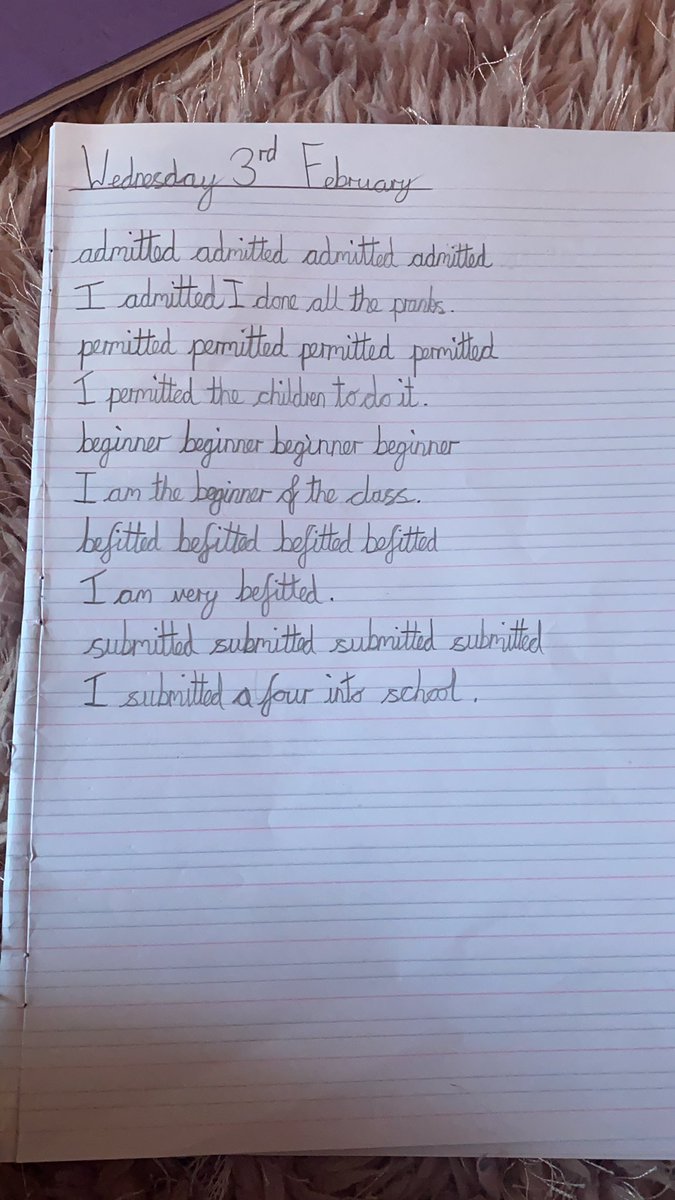 Wednesday 3rd February
admitted admitted admitted admitted
I admitted I done all the pranks.
permitted permitted permitted permitted
I permitted the children to do it.
beginner beginner beginner beginner
I am the beginner of the class.
befitted befitted befitted befitted
I am very befitted.
submitted submitted submitted submitted
I submitted a four into school.